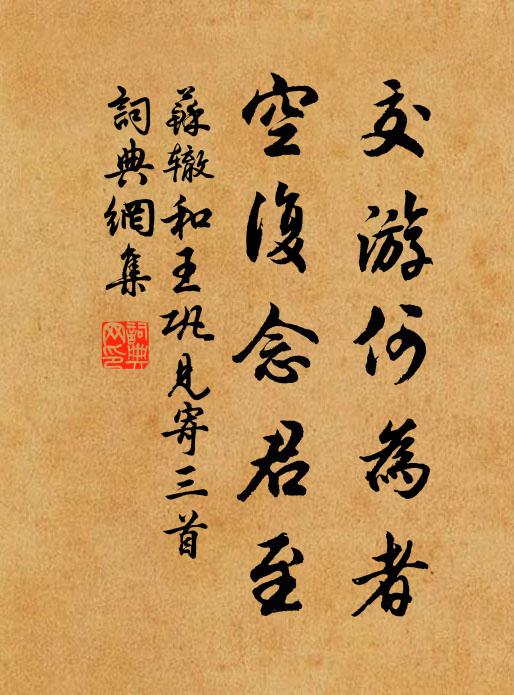 交游何為者
空復念君至
蘇辙和王巩見寄三首
詞典網集
詞典网印